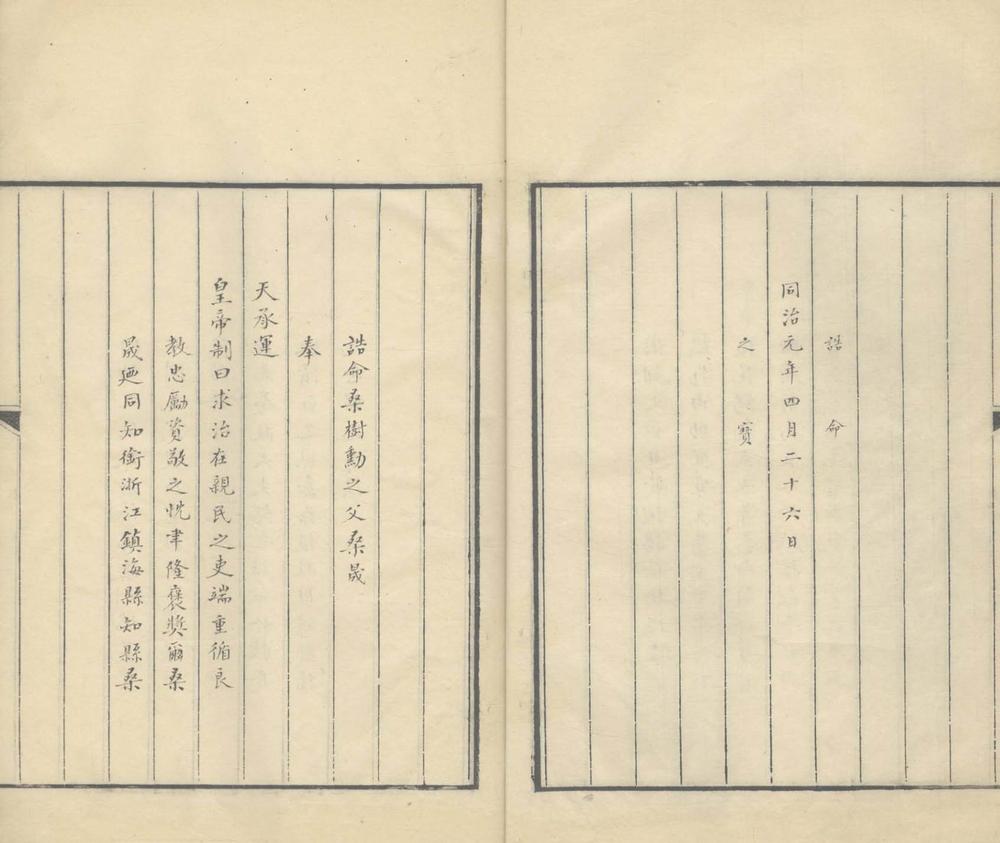 誥命
同治元年四月二十六日
之寶
誥命桑樹勳之父桑晟
奉
天承運
皇帝制曰求治在親民之吏端重循良
教忠勵資敬之忱聿隆褒獎爾桑
晟廼同知銜浙江鎮海縣知縣桑